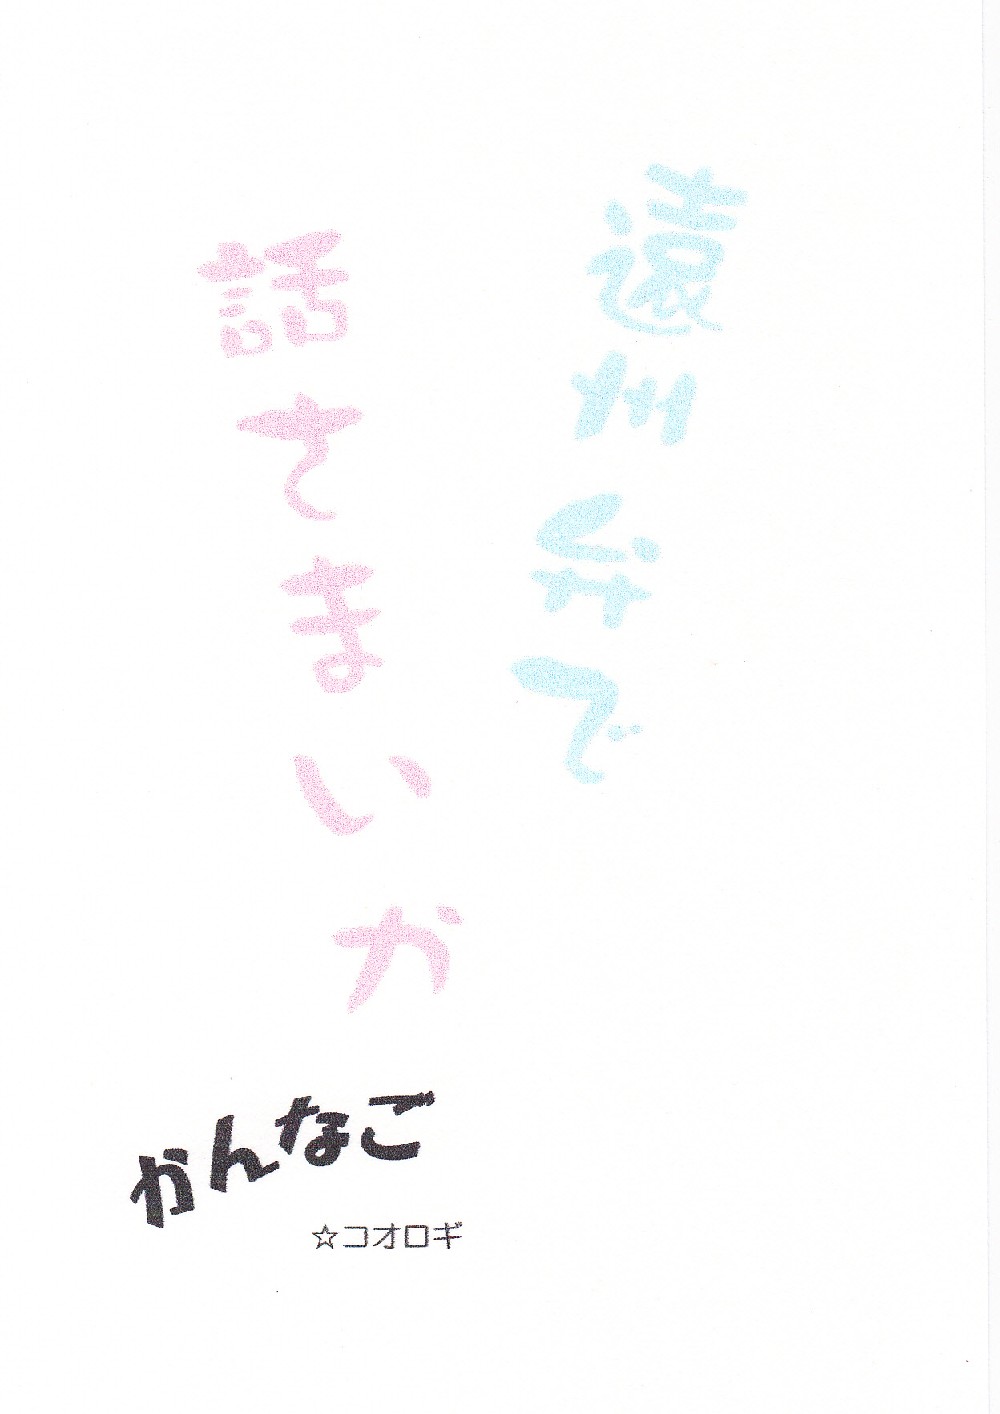 遠州弁で
話てまいか
かんなご
☆コオロギ